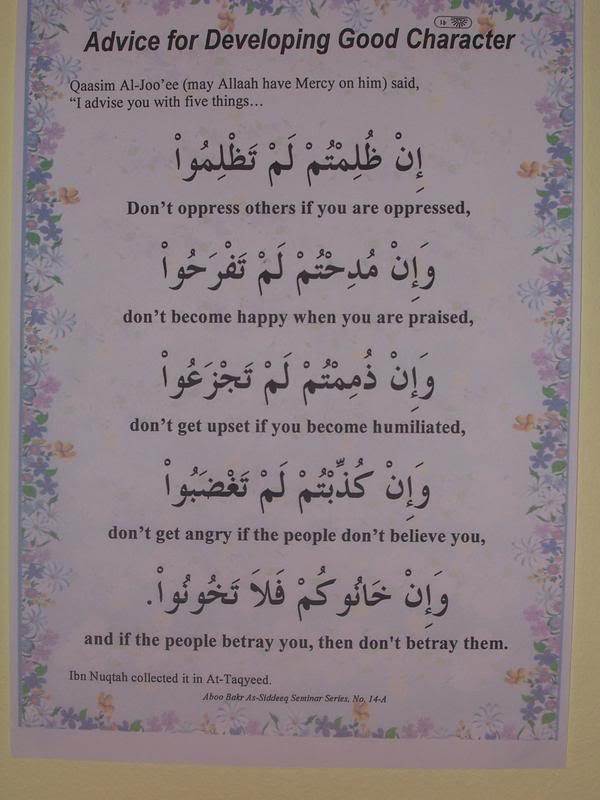 Advice for Developing Good Character
Qaasim Al-Joo'ee (may Allaah have Mercy on him) said,
"I advise you with five things…
إِنْ ظُلِمْتُمْ لَمْ تَظْلِمُواْ
Don't oppress others if you are oppressed,
وَإِنْ مُدِحْتُمْ لَمْ تَفْرَحُواْ
don't become happy when you are praised,
وَإِنْ ذُمِمْتُمْ لَمْ تَجْزَعُواْ
don't get upset if you become humiliated,
وَإِنْ كُذِّبْتُمْ لَمْ تَغْضَبُواْ
don't get angry if the people don't believe you,
وَإِنْ خَانُوكُمْ فَلاَ تَخُونُواْ.
and if the people betray you, then don't betray them.
Ibn Nuqtah collected it in At-Taqyeed.
Aboo Bakr As-Siddeeq Seminar Series, No. 14-A